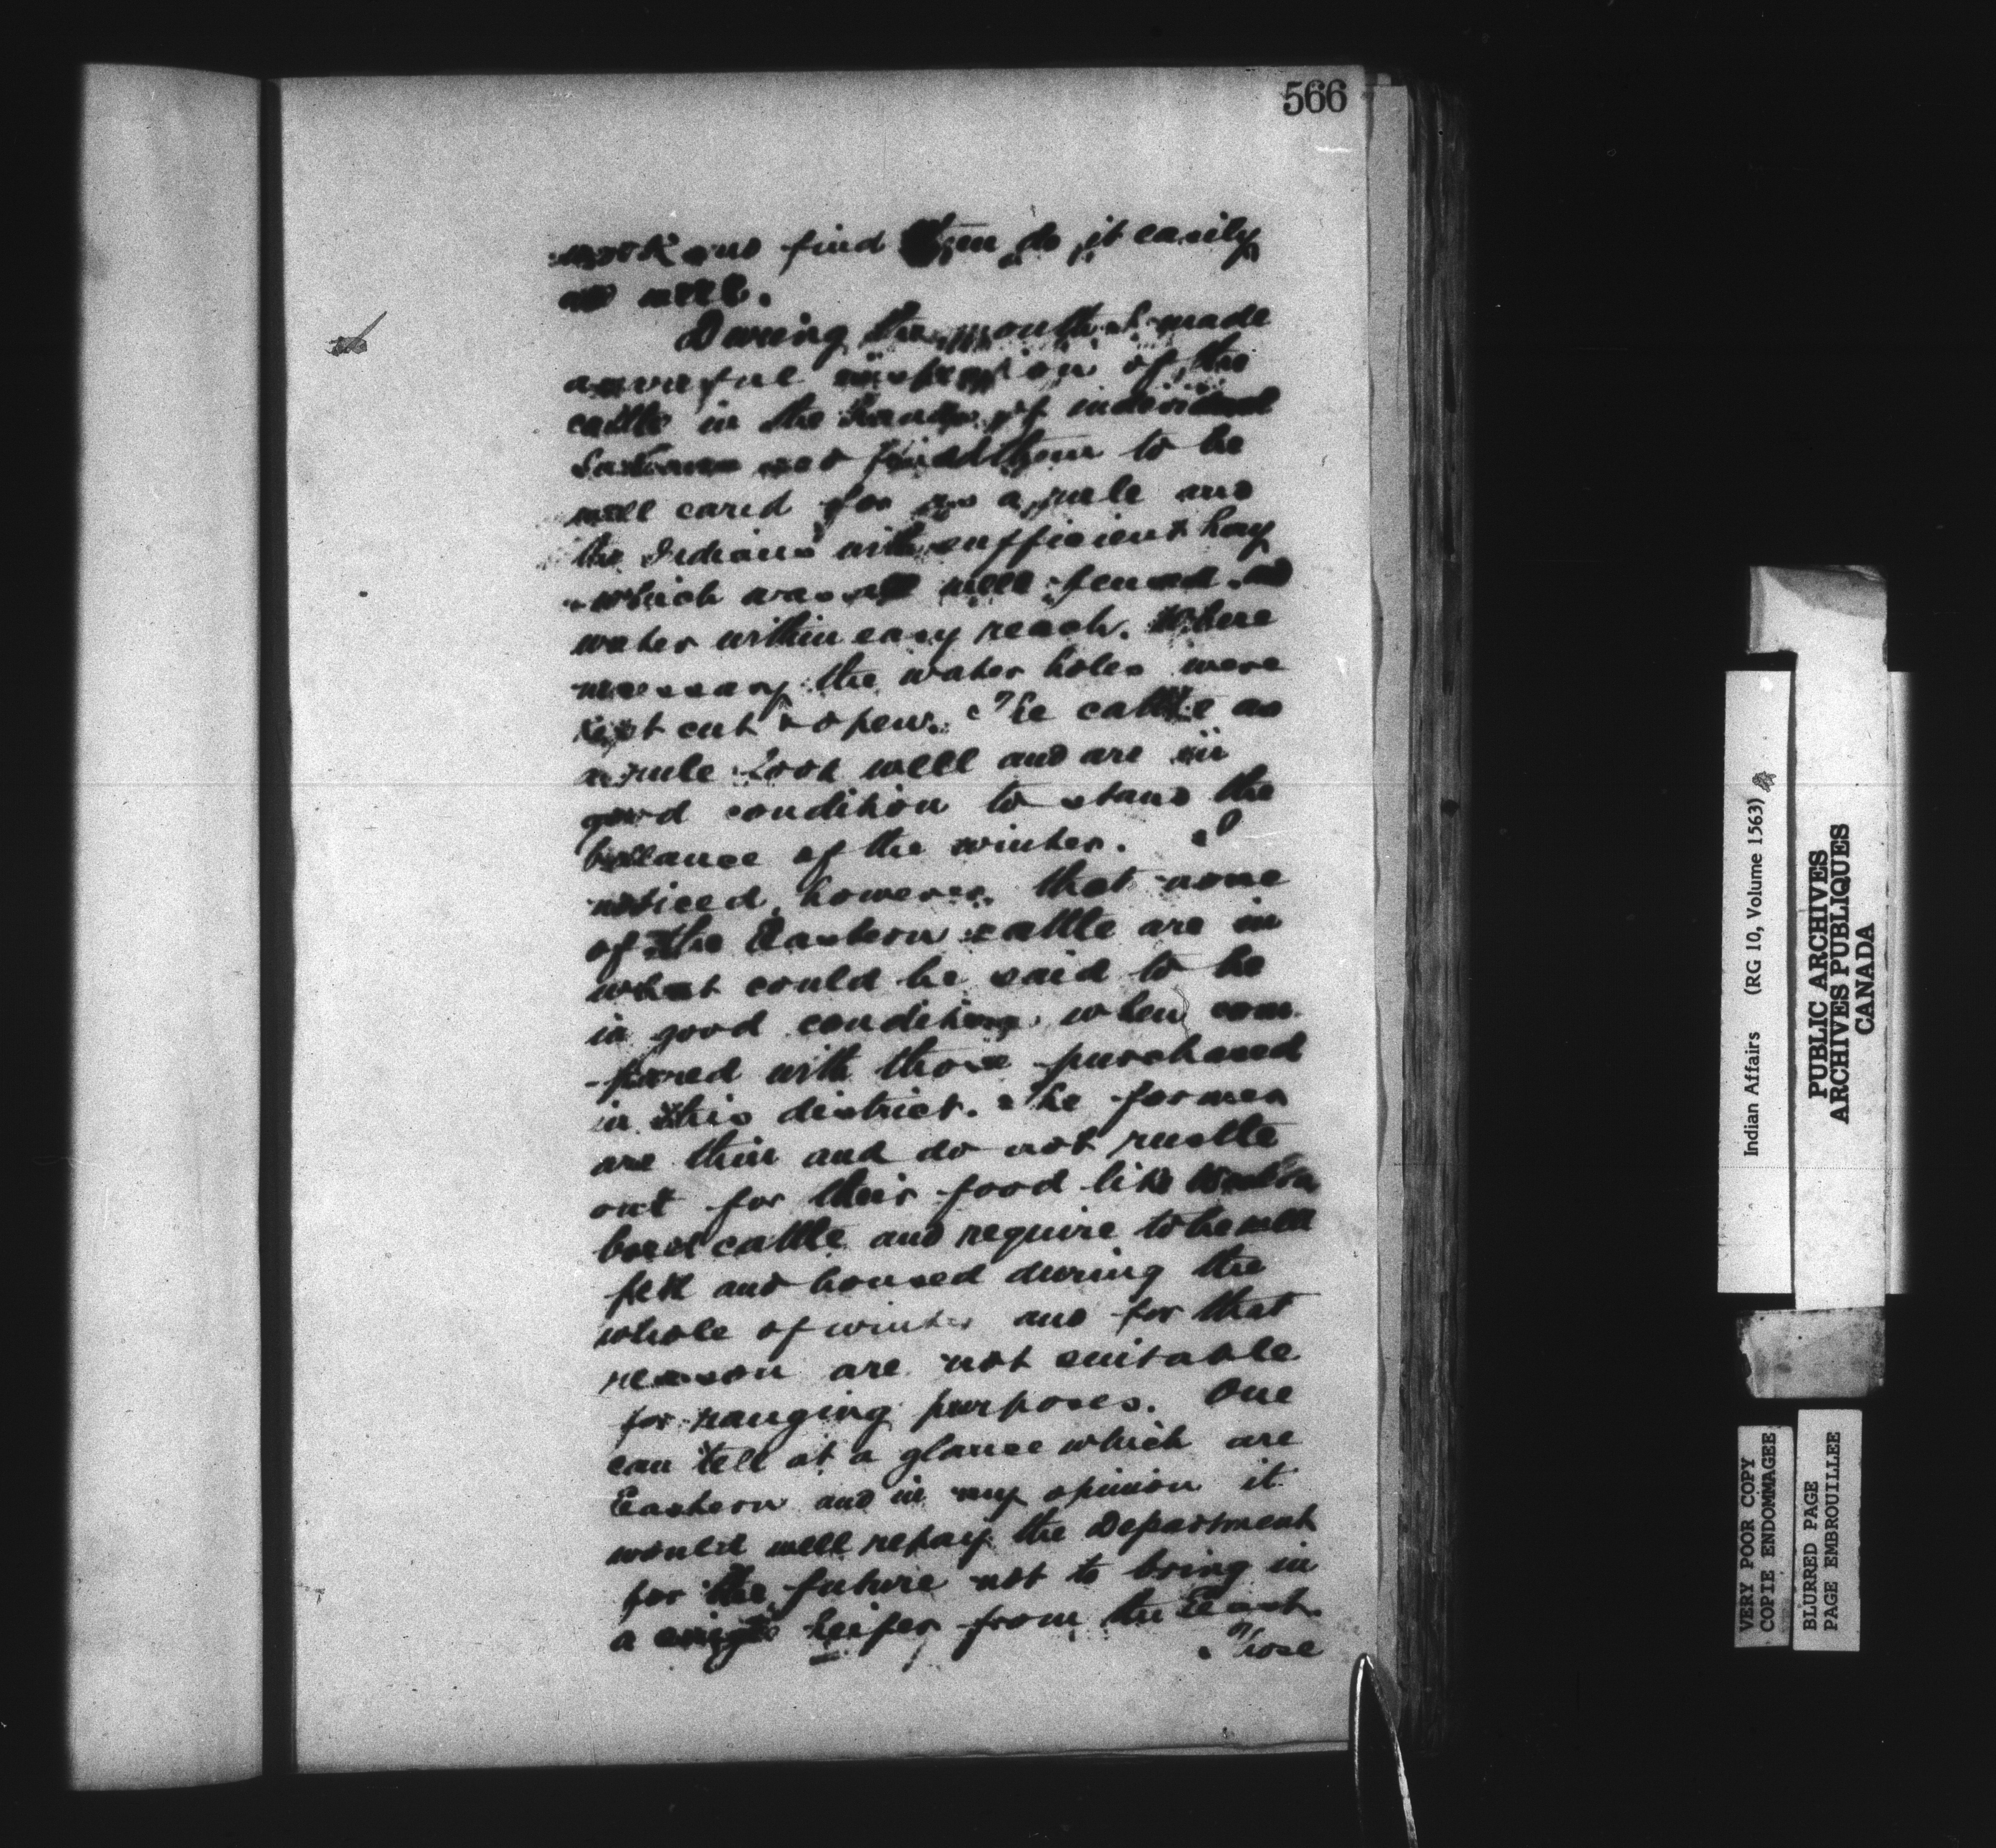 566
work and find them do it easily
and well.
During the month I made
a careful inspection of the
cattle in the hands of individual
Indians and find them to be
well cared for as a rule and
the Indians with sufficient hay
which was all well fenced and
water within easy reach. Where
necessary the water holes were
kept cut & open. The cattle as
a rule look well and are in
good condition to stand the
ballance of the winter. I
noticed, however, that none
of the Eastern cattle are in
what could be said to be
in good condition when com-
-pared with those purchased
in this district. The former
are thin and do not rustle
out for their food like Western
bred cattle and require to be well
fed and housed during the
whole of winter and for that
reason are not suitable
for ranging purposes. One
can tell at a glance which are
Eastern and in my opinion it
would well repay the Department
for the future not to bring in
a single heifer from the East.
Those
Indian Affairs (RG 10, Volume 1563)
PUBLIC ARCHIVES
ARCHIVES PUBLIQUES
CANADA
VERY POOR COPY
COPIE ENDOMMAGEE
BLURRED PAGE
PAGE EMBROUILLEE